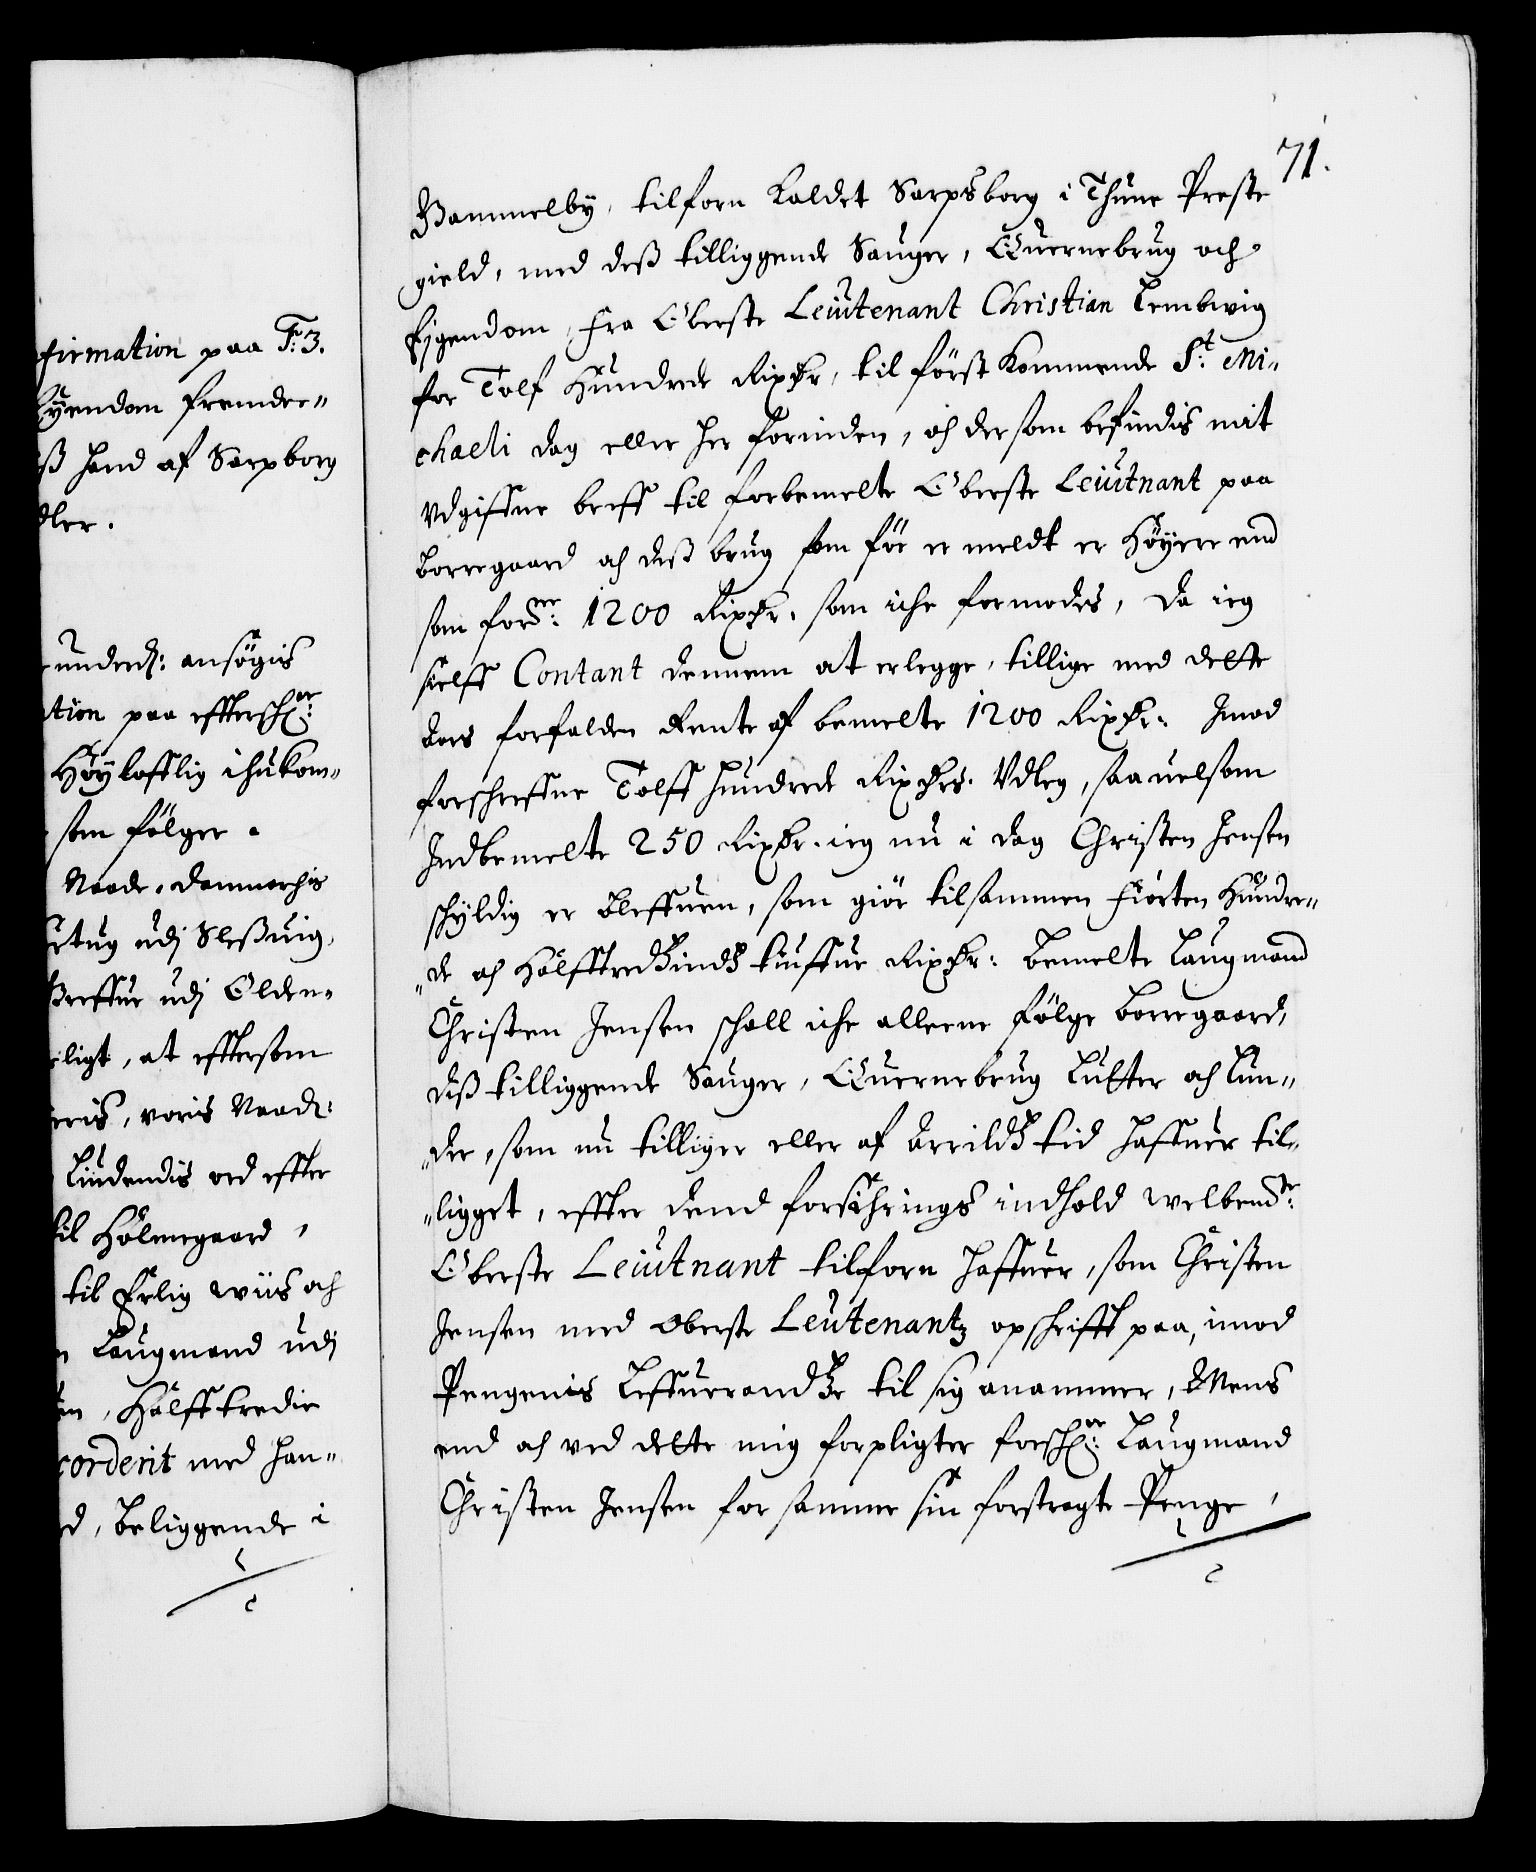 firmation paa F: 3.
Eyendom fremder-
ß hand af Sarpborg
dler.
underd: ansøgis
tion paa efftersch:ne
Høyloflig ihukom-
som følger.
Naade, Danmarchis
rtug udj Sleßuig,
Greffue udj Olden-
ligt, at efftersom
eris, voris Naad:
liudendis ord effter
til Holmegaard,
til Erlig wiis och
n Laugmand udj
en, Halfftredie
corderit med han-
d, beliggende i
71.
Gammelby, tilforn kaldet Sarpsborg i Thune Preste
gield, med deß tilliggende Sauger, Quernebrug och
Eigendom, fra Oberste Leutenant Christian Lembwig
for Tolf Hundrede Rixdr, til først kommende St: Mi-
chaeli dag eller her forinden, och dersom befindis mit
vdgiffne breff til forbemelte Oberste Leutnant paa
Borregaard och deß brug som før er meldt er Høyere end
som forne: 1200 Rixdr. som iche formodes, da ieg
sielff Contant dennem at erlegge, tillige med dette
Aars forfalden Rente af bemelte 1200 Rixdr. Imod
forschreffne Tolff hundrede Rixdrs. Vdleg, saauelsom
Indbemelte 250 Rixdr. ieg nu i dag Christen Jensen
schyldig er bleffuen, som giør tilsammen Fiorten Hundre-
de och Halfftredsinds tiuffue Rixdr: bemelte Laugmand
Christen Jensen schall iche alleene følge Borregaard,
diß tilliggende Sauger, Quernebrug Lutter och Lun-
der, som nu tilliger eller af Arrilds tid haffuer til-
ligget, effter dend forsichrings indhold welbemte:
Oberste Leutnant tilforn haffuer, som Christen
Jensen med Oberste Leutenantz opschrifft paa, imod
Pengenis Leffuerandze til sig anammer, Mens
end och ved dette mig forpligter forsch:ne Laugmand
Christen Jensen for samme sin forstragte Penge,